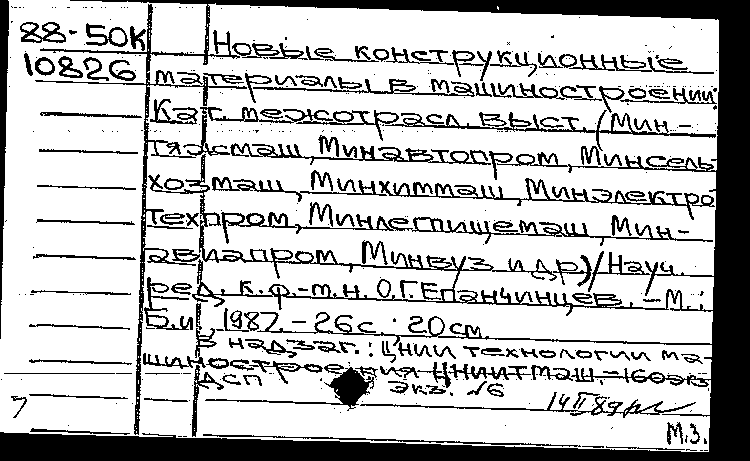 88-50К
10826
Новые конструкционные
материалы в машиностроении:
Кат. межотрасл. выст. (Мин-
тяжмаш, Минавтопром, Минсель-
хозмаш, Минхиммаш, Минэлектро
техпром, Минлегпищемаш, Мин-
авиапром, Минвуз и др.)/Науч.
ред. к.ф.-м.н. О.Г.Епанчинцев. – М.:
Б.и., 1987. – 26 с.; 20 см.
В надзаг.: ЦНИИ технологии ма-
шиностроения ЦНИИТмаш. – 160 экз
ДСП экз. №6
14 II 89
7
М.З.